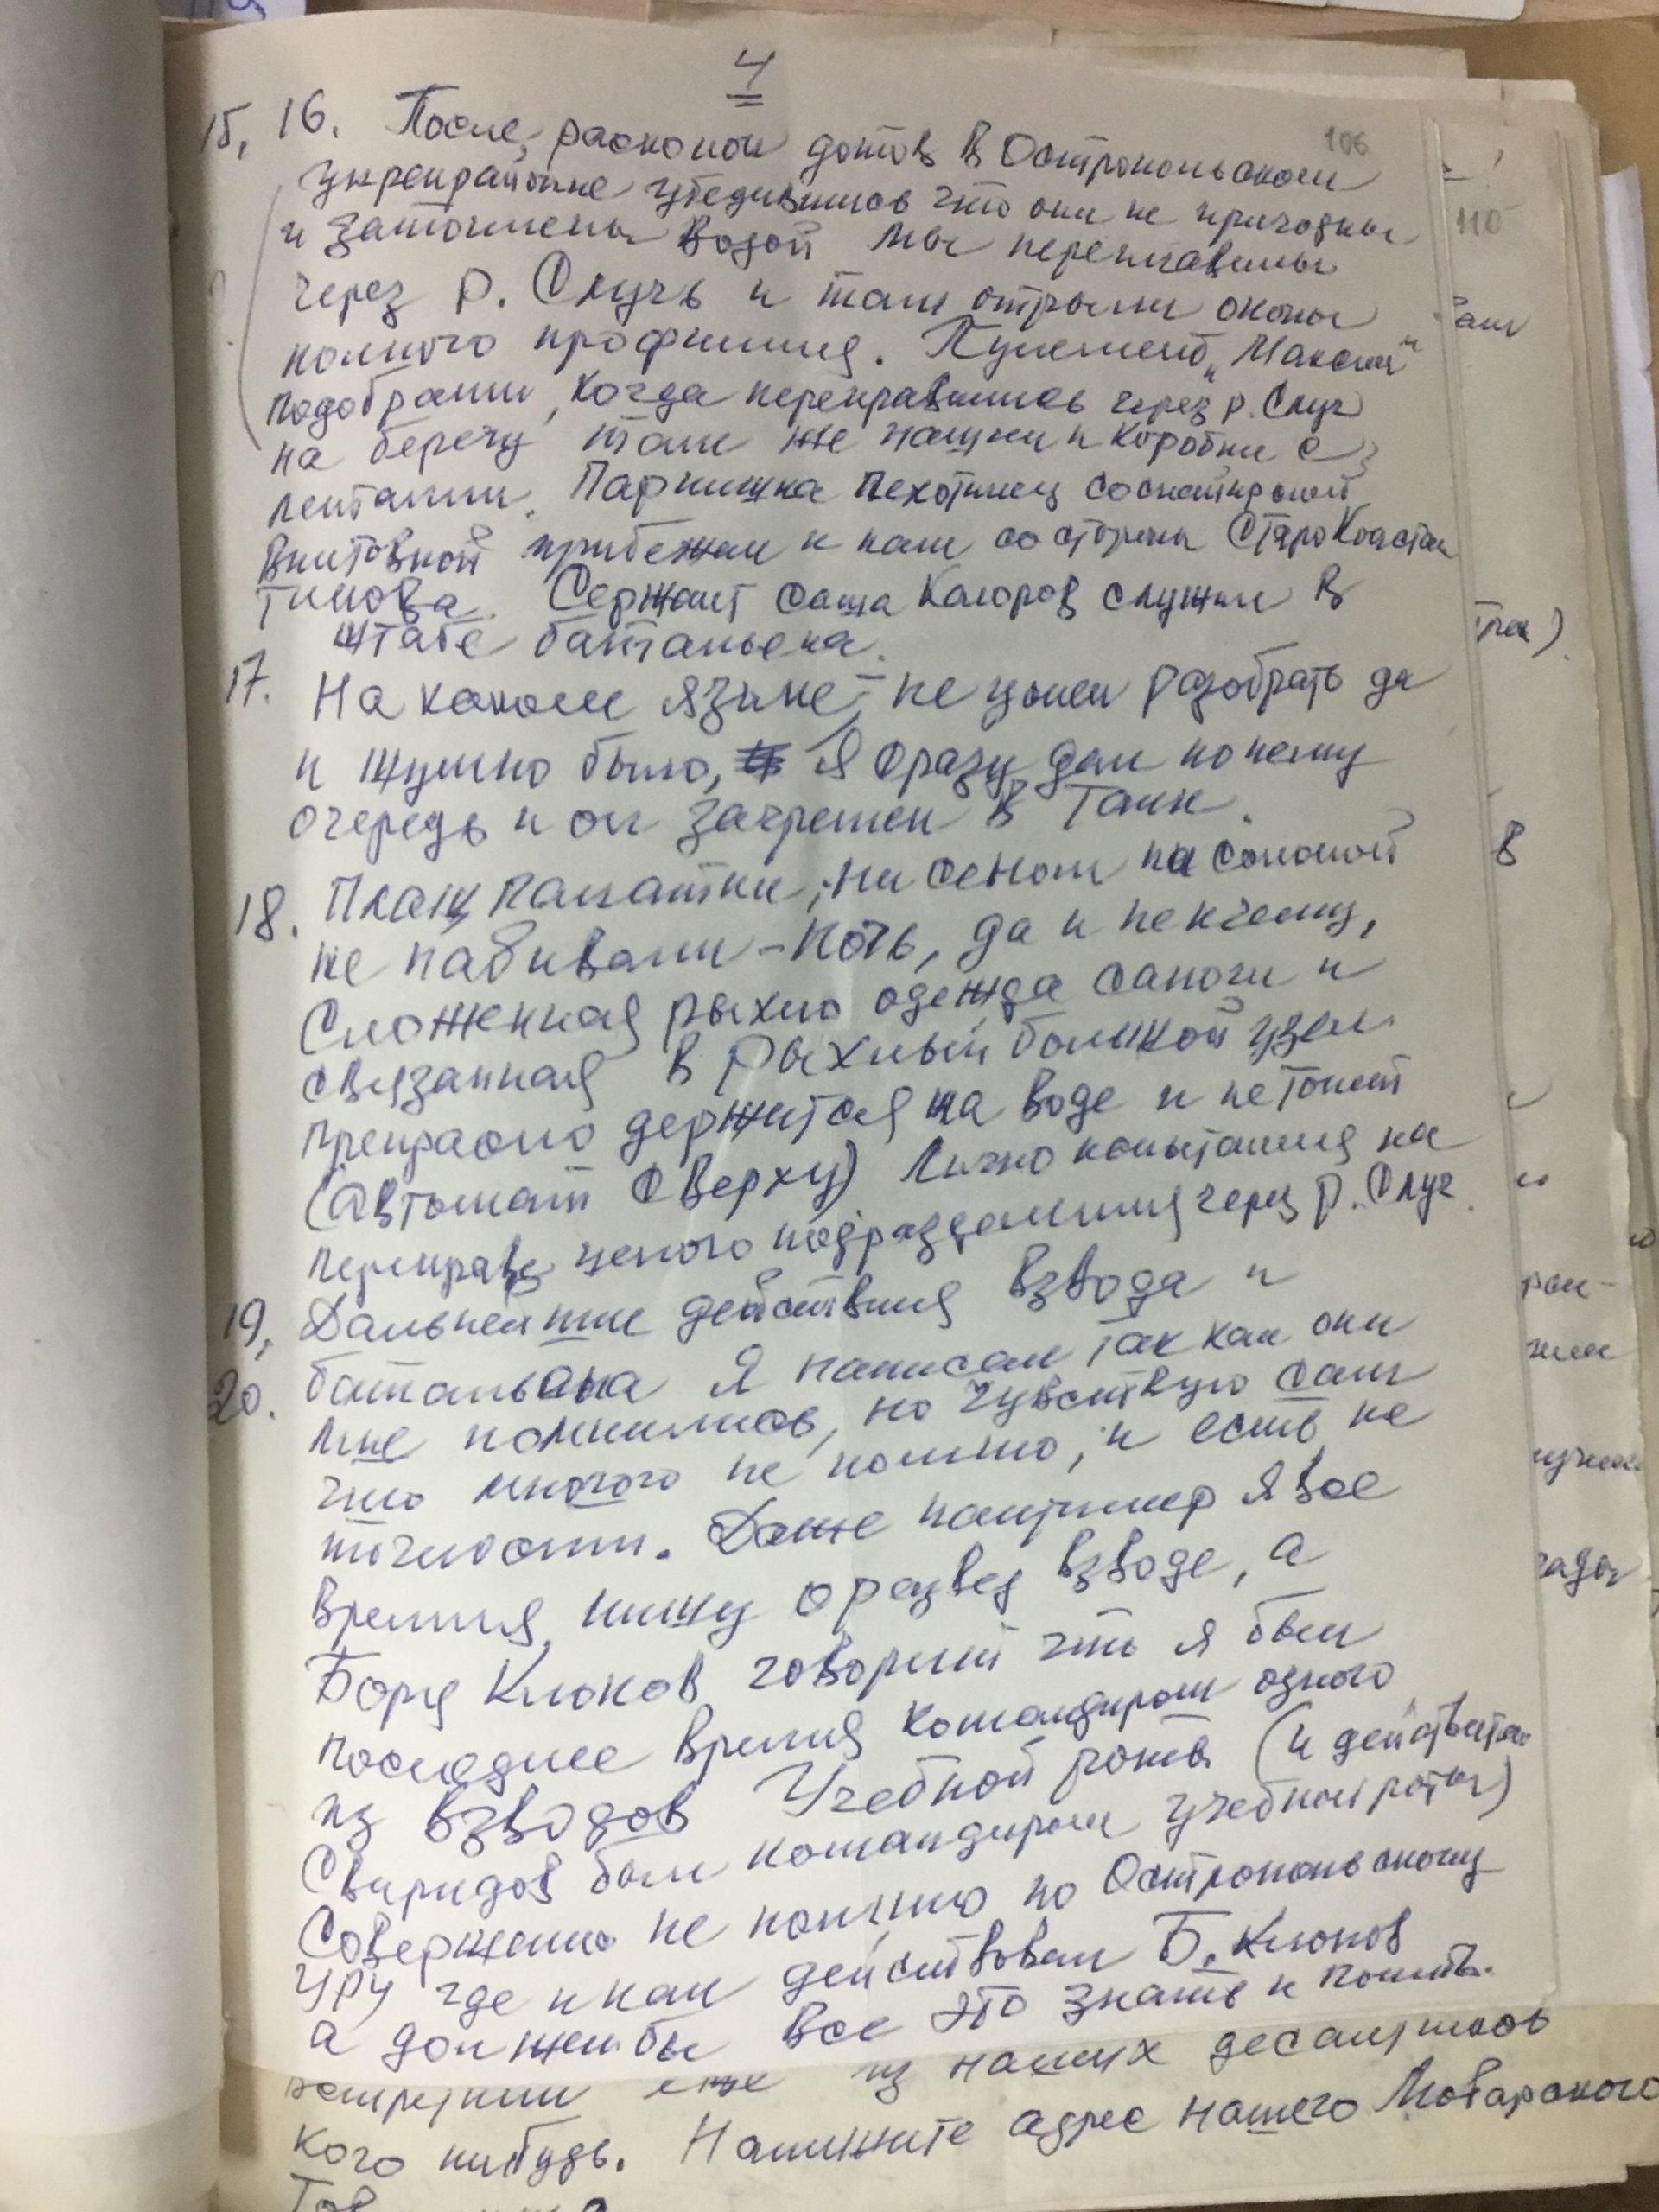 4
106
15, 16. После раскопок дотов в Остропольском
укрепрайоне убедившись что они не пригодны
и затоплены водой мы переплавились
через р. Случь и там отрыли окопы
полного профиля. Пулемет „Максим"
подобрали, когда переправились через р. Случ
на берегу там же нашли и коробки с
лентами. Парнишка пехотинец со снайперской
винтовкой прибежал к нам со стороны СтароКонстан
тинова. Сержант Саша Каюров служил в
штабе батальона.
17. На каком языке, не успел разобрать да
и шумно было, Я сразу дал по нему
очередь и он загремел в танк.
18. Плащ палатки, ни сеном ни соломой
не набивали - ночь, да и не к чему,
Сложенная рыхло одежда сапоги и
связанная в рыхлый большой узел
прекрасно держится на воде и не тонет
(автомат сверху) Лично испытания на
переправе целого подразделения через р. Случ.
19, Дальнейшие действия взвода и
20. батальона Я написал так как они
мне помнились, но чувствую сам
что многого не помню, и есть не
точности. Даже например я все
время пишу о развед взводе, а
Боря Клюков говорит что я был
последнее время командиром одного
из взводов Учебной роты (и действител
Свиридов был командиром учебной роты)
Совершенно не помню по Остропольскому
УРу где и как действовал Б. Клюков
а должен бы все это знать и помнить.
еще из наших десантников
кого нибудь. Напишите адрес нашего
110
в